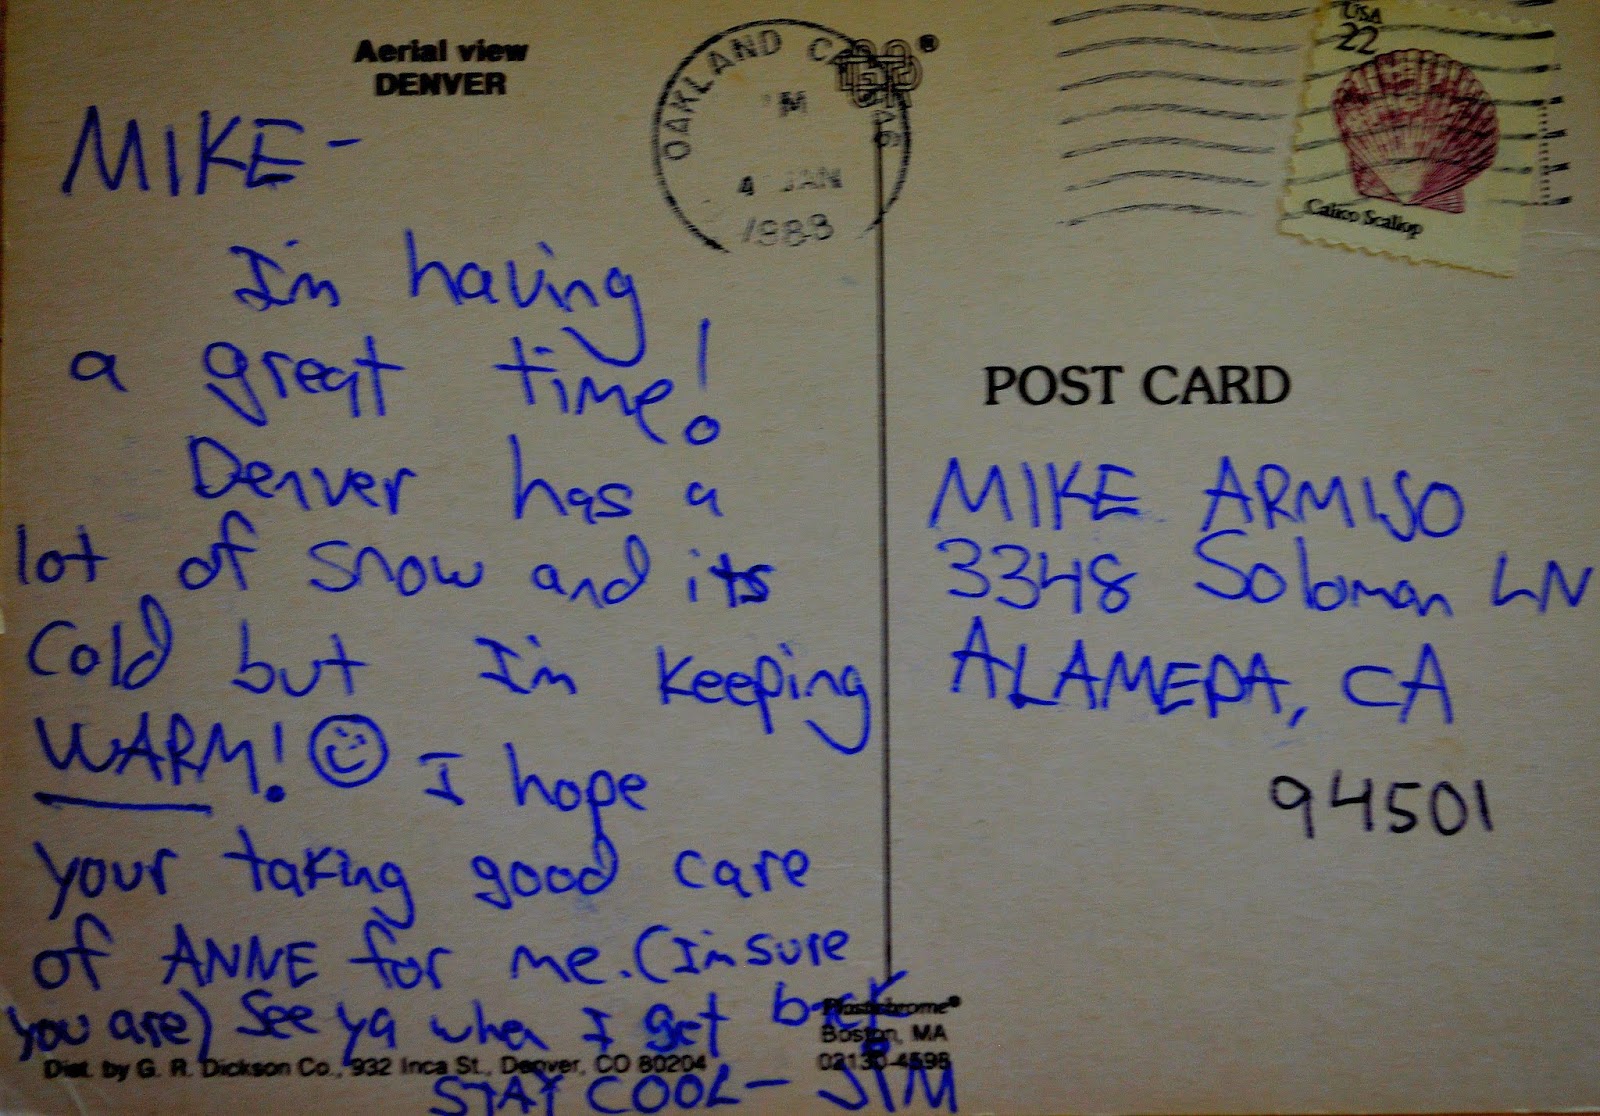 Aerial view
DENVER
OAKLAND CA 946
M
4 JAN
1988
USA
22
Calico Scallop
MIKE-
I'm having
a great time!
Denver has a
lot of snow and its
Cold but I'm keeping
WARM! I hope
your taking good care
of ANNE for me. (I'm sure
you are) See ya when I get back
STAY COOL- JIM
POST CARD
MIKE ARMIJO
3348 Soloman LN
ALAMEDA, CA
94501
Plastichrome®
Boston, MA
02130-4598
Dist. by G. R. Dickson Co., 932 Inca St., Denver, CO 80204